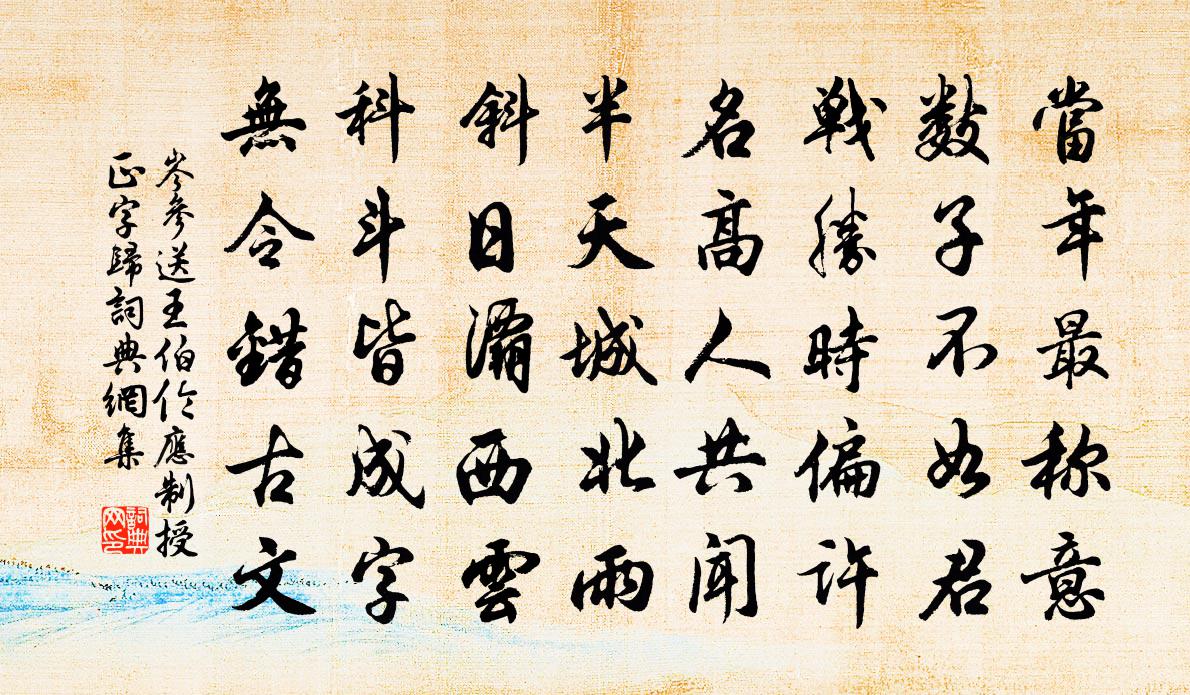 當年最称意
数子不如君
戦勝時偏許
名高人共聞
半天城北雨
斜日灞西雲
科斗皆成字
無令錯古文
岑參送王伯伦應制授
正字歸詞典網集
詞典网印